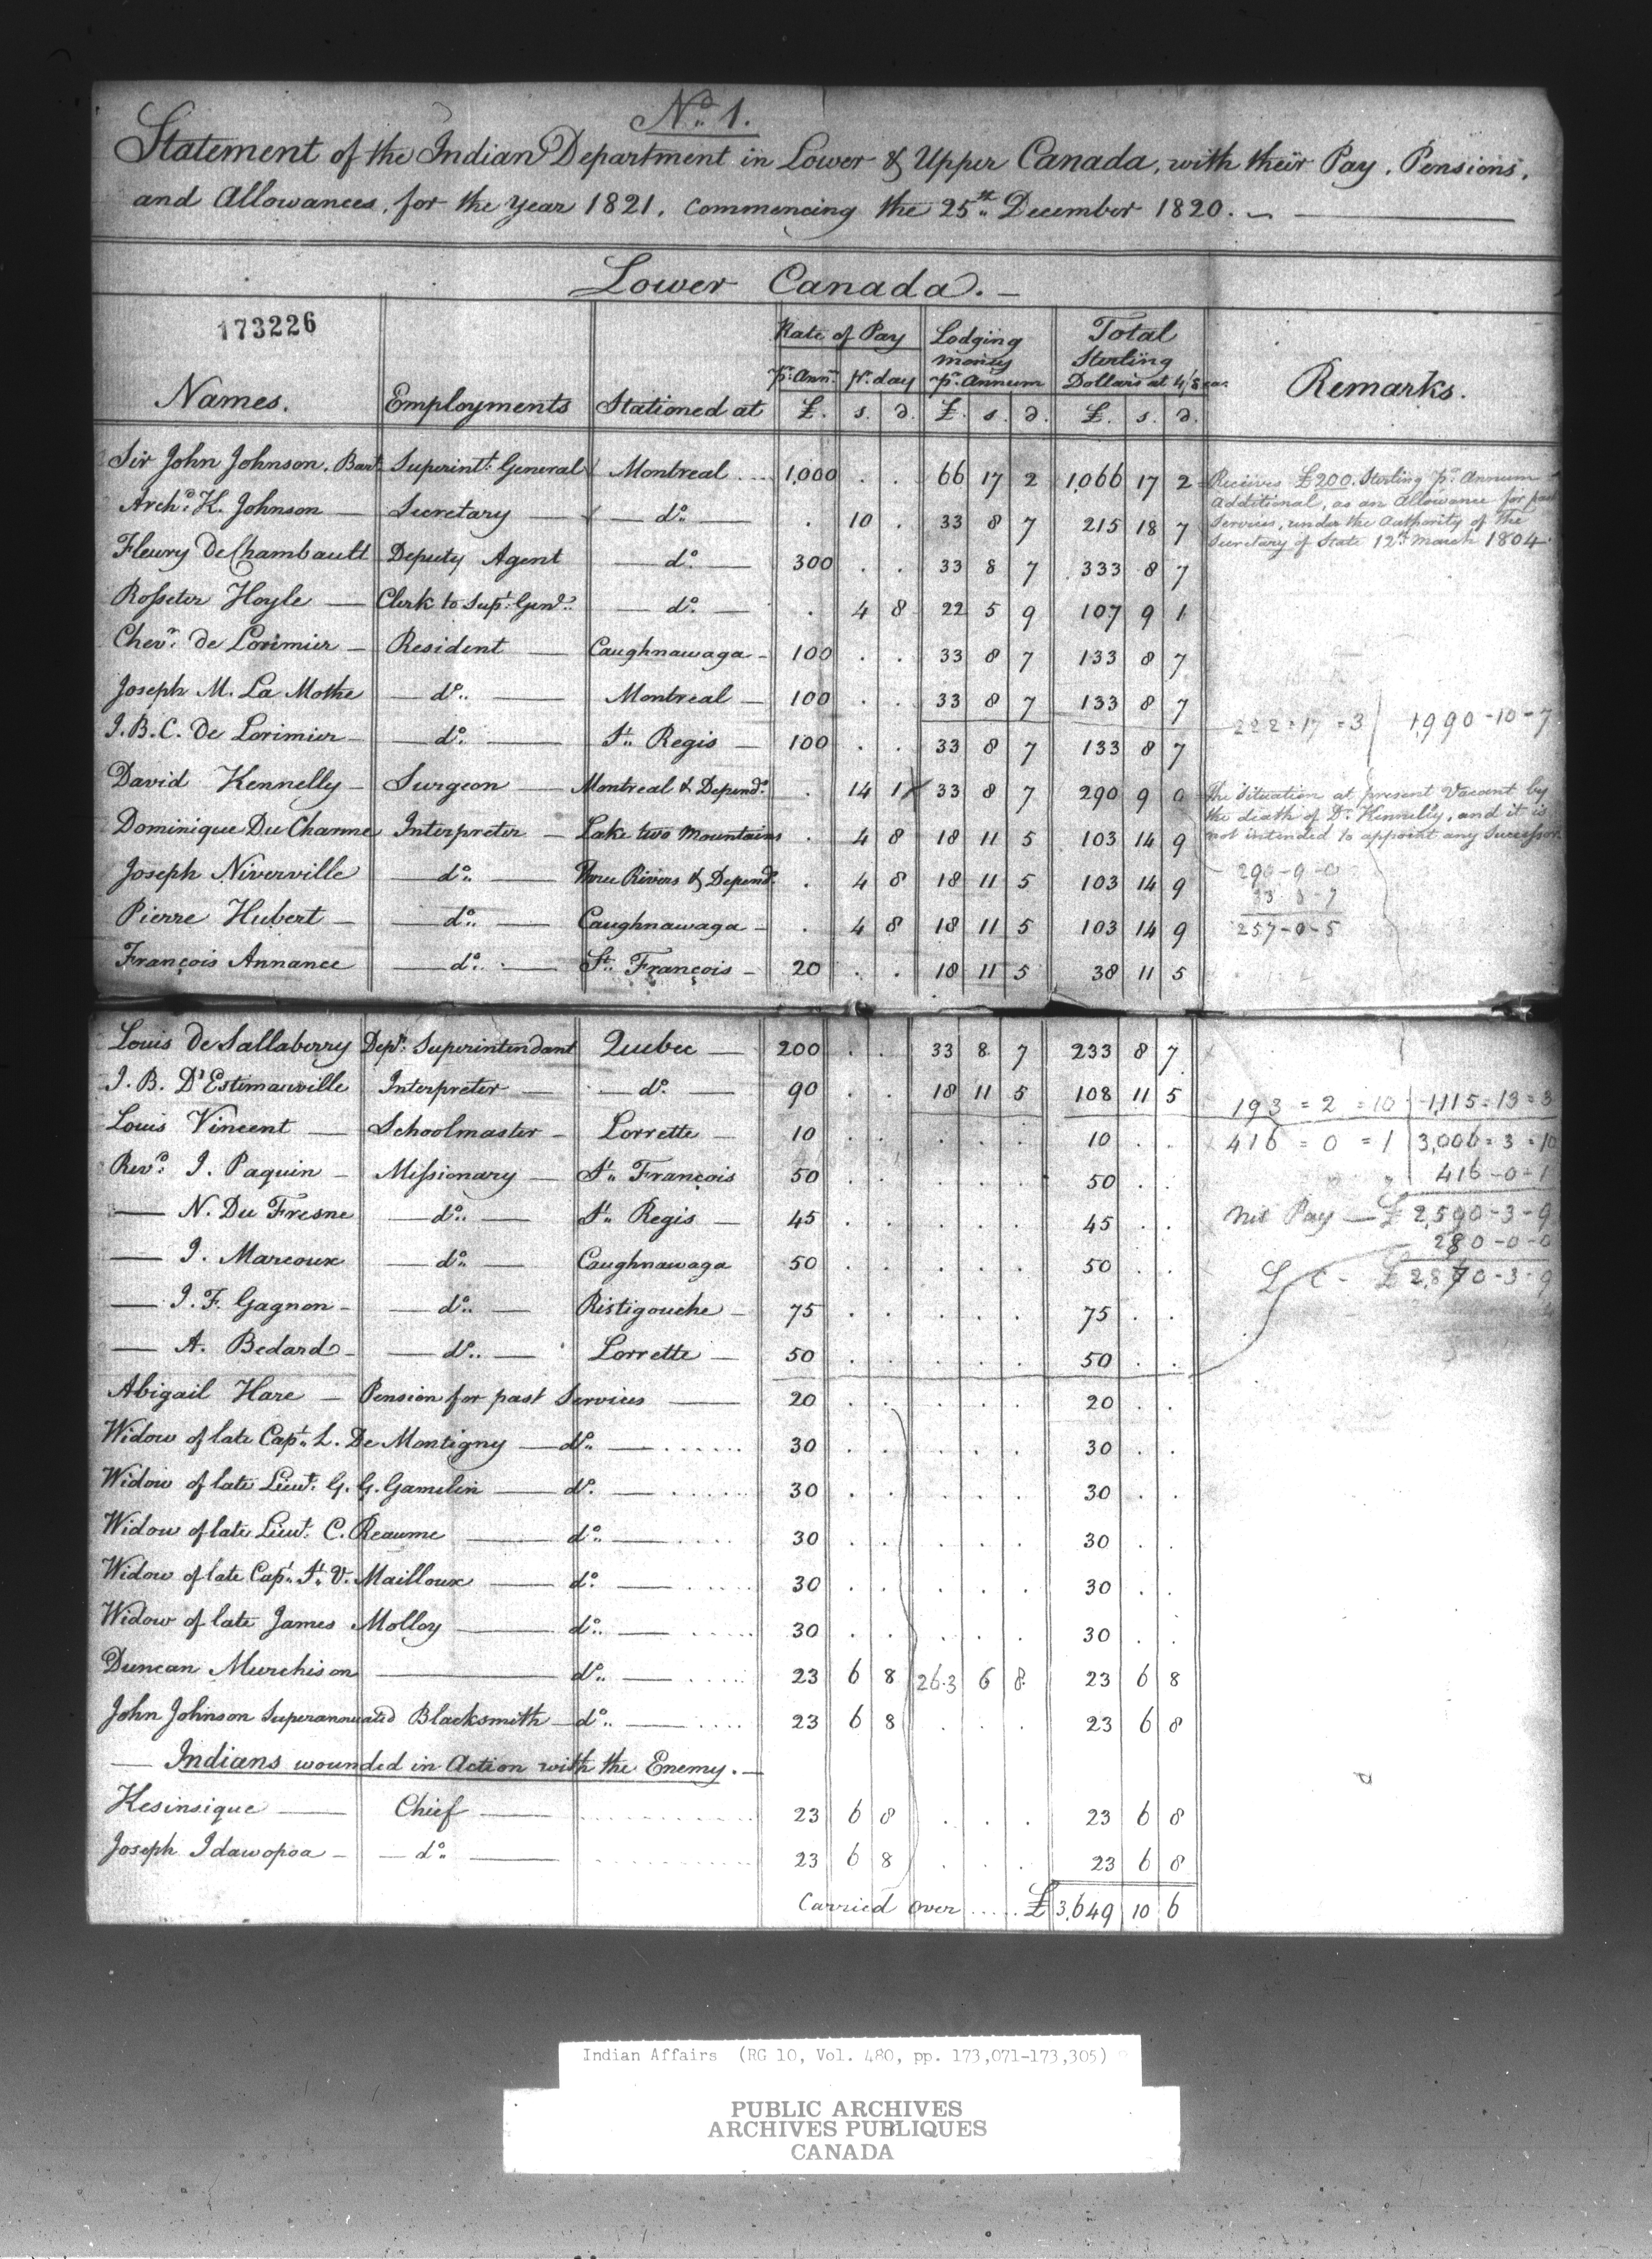 No. 1.
Statement of the Indian Department in Lower & Upper Canada, with their Pay, Pensions,
and Allowances, for the Year 1821, commencing the 25th December 1820.
Lower Canada.
173226
Names. Employments Stationed at Rate of Pay Lodging money pr. Annum Total Sterling Dollars at 4/8 ea. Remarks.
pr. Ann. pr. day
£. s. d. £. s. d. £. s. d.
Sir John Johnson, Bart. Superintt. General Montreal ... 1,000 . . 66 17 2 1,066 17 2
Receives £200 Sterling pr. Annum
Additional, as an Allowance for past
Services, under the Authority of the
Secretary of State 12th March 1804.
Archd. K. Johnson Secretary do. . 10 . 33 8 7 215 18 7
Fleury DeChambault Deputy Agent do. 300 . . 33 8 7 333 8 7
Rosseter Hoyle Clerk to Supt. Genl. do. . 4 8 22 5 9 107 9 1
Chevr. de Lorimier Resident Caughnawaga 100 . . 33 8 7 133 8 7
Joseph M. La Mothe do. Montreal 100 . . 33 8 7 133 8 7
222=17=3 1,990-10-7
J. B. C. de Lorimier do. St. Regis 100 . . 33 8 7 133 8 7
David Kennelly Surgeon Montreal & Depend. . 14 1 33 8 7 290 9 0
The Situation at present Vacant by
the death of Dr. Kennelly, and it is
not intended to appoint any Successor.
Dominique DuCharme Interpreter Lake two Mountains . 4 8 18 11 5 103 14 9
Joseph Niverville do. Three Rivers & Depend. . 4 8 18 11 5 103 14 9
290-9-0
33 8-7
257-0-5
Pierre Hubert do. Caughnawaga . 4 8 18 11 5 103 14 9
François Annance do. St. François 20 . . 18 11 5 38 11 5
Louis de Sallaberry Depy. Superintendant Quebec 200 . . 33 8 7 233 8 7
J. B. D'Estimauville Interpreter do. 90 . . 18 11 5 108 11 5
193=2=10 1,115=13=3
Louis Vincent Schoolmaster Lorrette 10 . . . . . 10 . .
416=0=1 3,006=3=10
Revd. J. Paquin Missionary St. François 50 . . . . . 50 . .
416-0-1
N. Du Fresne do. St. Regis 45 . . . . . 45 . .
Nit Pay £2,590-3-9
280-0-0
J. Marcoux do. Caughnawaga 50 . . . . . 50 . .
L C - £2,870-3-9
J. F. Gagnon do. Ristigouche 75 . . . . . 75 . .
A. Bedard do. Lorrette 50 . . . . . 50 . .
Abigail Hare Pension for past Services 20 . . . . . 20 . .
Widow of late Capt. L. De Montigny do. 30 . . . . . 30 . .
Widow of late Lieut. G. G. Gamelin do. 30 . . . . . 30 . .
Widow of late Lieut. C. Reaume do. 30 . . . . . 30 . .
Widow of late Capt. St. V. Mailloux do. 30 . . . . . 30 . .
Widow of late James Molloy do. 30 . . . . . 30 . .
Duncan Murchison do. 23 6 8 263 6 8 23 6 8
John Johnson Superannuated Blacksmith do. 23 6 8 . . . 23 6 8
Indians wounded in Action with the Enemy.
Kesinsique Chief 23 6 8 . . . 23 6 8
Joseph Idawopoa do. 23 6 8 . . . 23 6 8
Carried over ..... £3,649 10 6
Indian Affairs (RG 10, Vol. 480, pp. 173,071-173,305)
PUBLIC ARCHIVES
ARCHIVES PUBLIQUES
CANADA